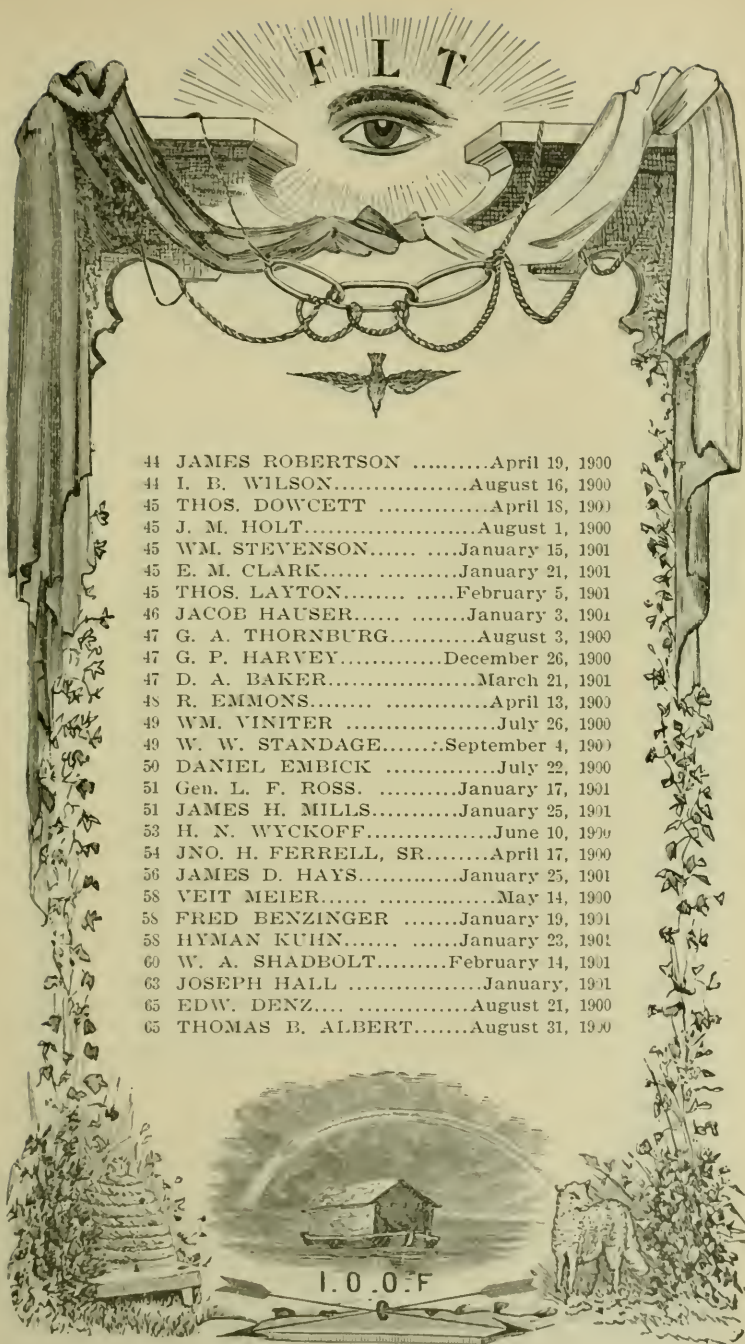 F L T
44 JAMES ROBERTSON ..........April 19, 1900
44 I. B. WILSON.................August 16, 1900
45 THOS. DOWCETT ..............April 18, 1900
45 J. M. HOLT......................August 1, 1900
45 WM. STEVENSON...... ....January 15, 1901
45 E. M. CLARK...... ...........January 21, 1901
45 THOS. LAYTON........ .....February 5, 1901
46 JACOB HAUSER...... .......January 3, 1901
47 G. A. THORNBURG...........August 3, 1900
47 G. P. HARVEY.............December 26, 1900
47 D. A. BAKER...................March 21, 1901
48 R. EMMONS........ .............April 13, 1900
49 WM. VINITER ...................July 26, 1900
49 W. W. STANDAGE.......:.September 4, 1900
50 DANIEL EMBICK ..............July 22, 1900
51 Gen. L. F. ROSS. ..........January 17, 1901
51 JAMES H. MILLS...........January 25, 1901
53 H. N. WYCKOFF................June 10, 1900
54 JNO. H. FERRELL, SR........April 17, 1900
56 JAMES D. HAYS.............January 25, 1901
58 VEIT MEIER........ ..............May 14, 1900
58 FRED BENZINGER .......January 19, 1901
58 HYMAN KUHN....... .......January 23, 1901
60 W. A. SHADBOLT.........February 14, 1901
63 JOSEPH HALL .................January, 1901
65 EDW. DENZ.... .................August 21, 1900
65 THOMAS B. ALBERT.......August 31, 1900
I.O.O.F